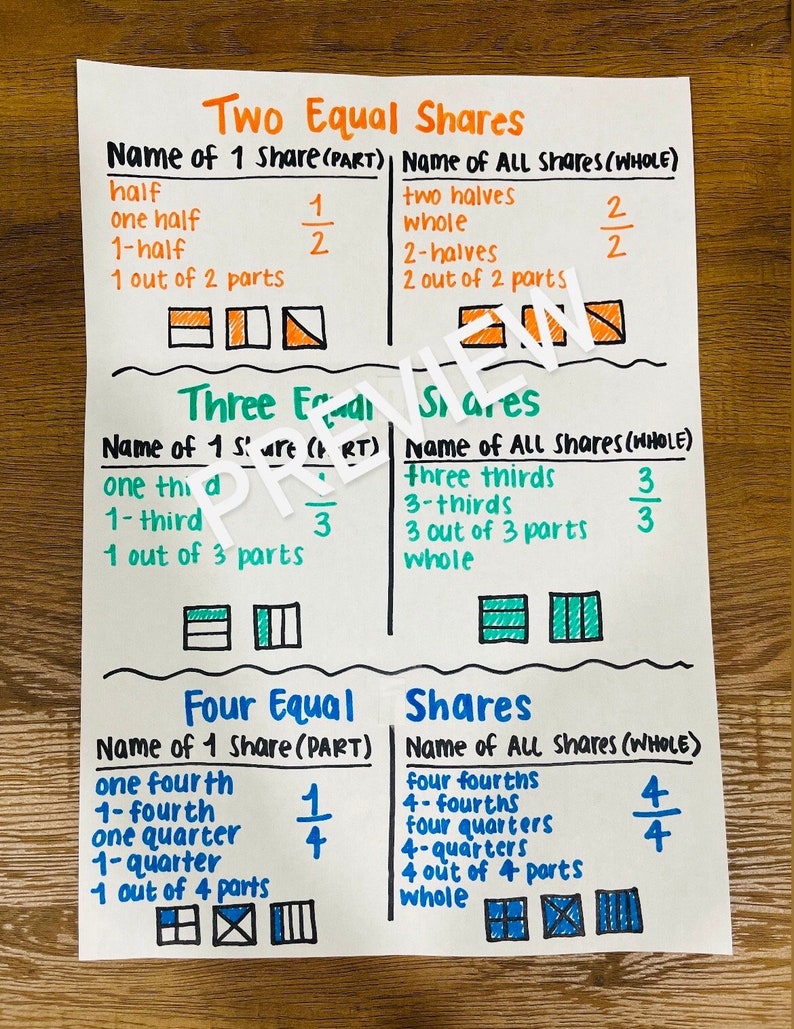 Two Equal Shares
Name of 1 Share (PART)
half
one half
1-half
1 out of 2 parts
1
2
Name of ALL Shares (WHOLE)
two halves
whole
2-halves
2 out of 2 parts
2
2
PREVIEW
Three Equal Shares
Name of 1 Share (PART)
one third
1-third
1 out of 3 parts
1
3
Name of ALL Shares (WHOLE)
three thirds
3-thirds
3 out of 3 parts
whole
3
3
Four Equal Shares
Name of 1 Share (PART)
one fourth
1-fourth
one quarter
1-quarter
1 out of 4 parts
1
4
Name of ALL Shares (WHOLE)
four fourths
4-fourths
four quarters
4-quarters
4 out of 4 parts
whole
4
4